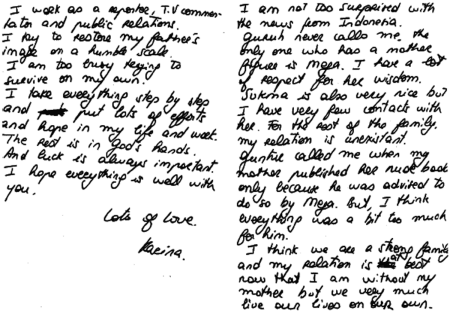 I work as a reporter, T.V commen-
tator and public relations.
I try to restore my father's
image on a humble scale.
I am too busy trying to
survive on my own.
I take everything step by step
and put lots of efforts
and hope in my life and work.
The rest is in God's hands.
And luck is always important.
I hope everything is well with
you.
Lots of love.
Karina.
I am not too surprised with
the news from Indonesia.
Guruh never calls me, the
only one who has a mother
figure is Mega. I have a lot
of respect for her wisdom.
Sukma is also very nice but
I have very few contack with
her. For the rest of the family.
my relation is inexistant.
Guntur called me when my
mother published her nude book
only because he was advised to
do so by Mega. But, I think
everything was a bit too much
for him.
I think we are a strong family
and my relation is at best
now that I am without my
mother but we very much
live our lives on our own.